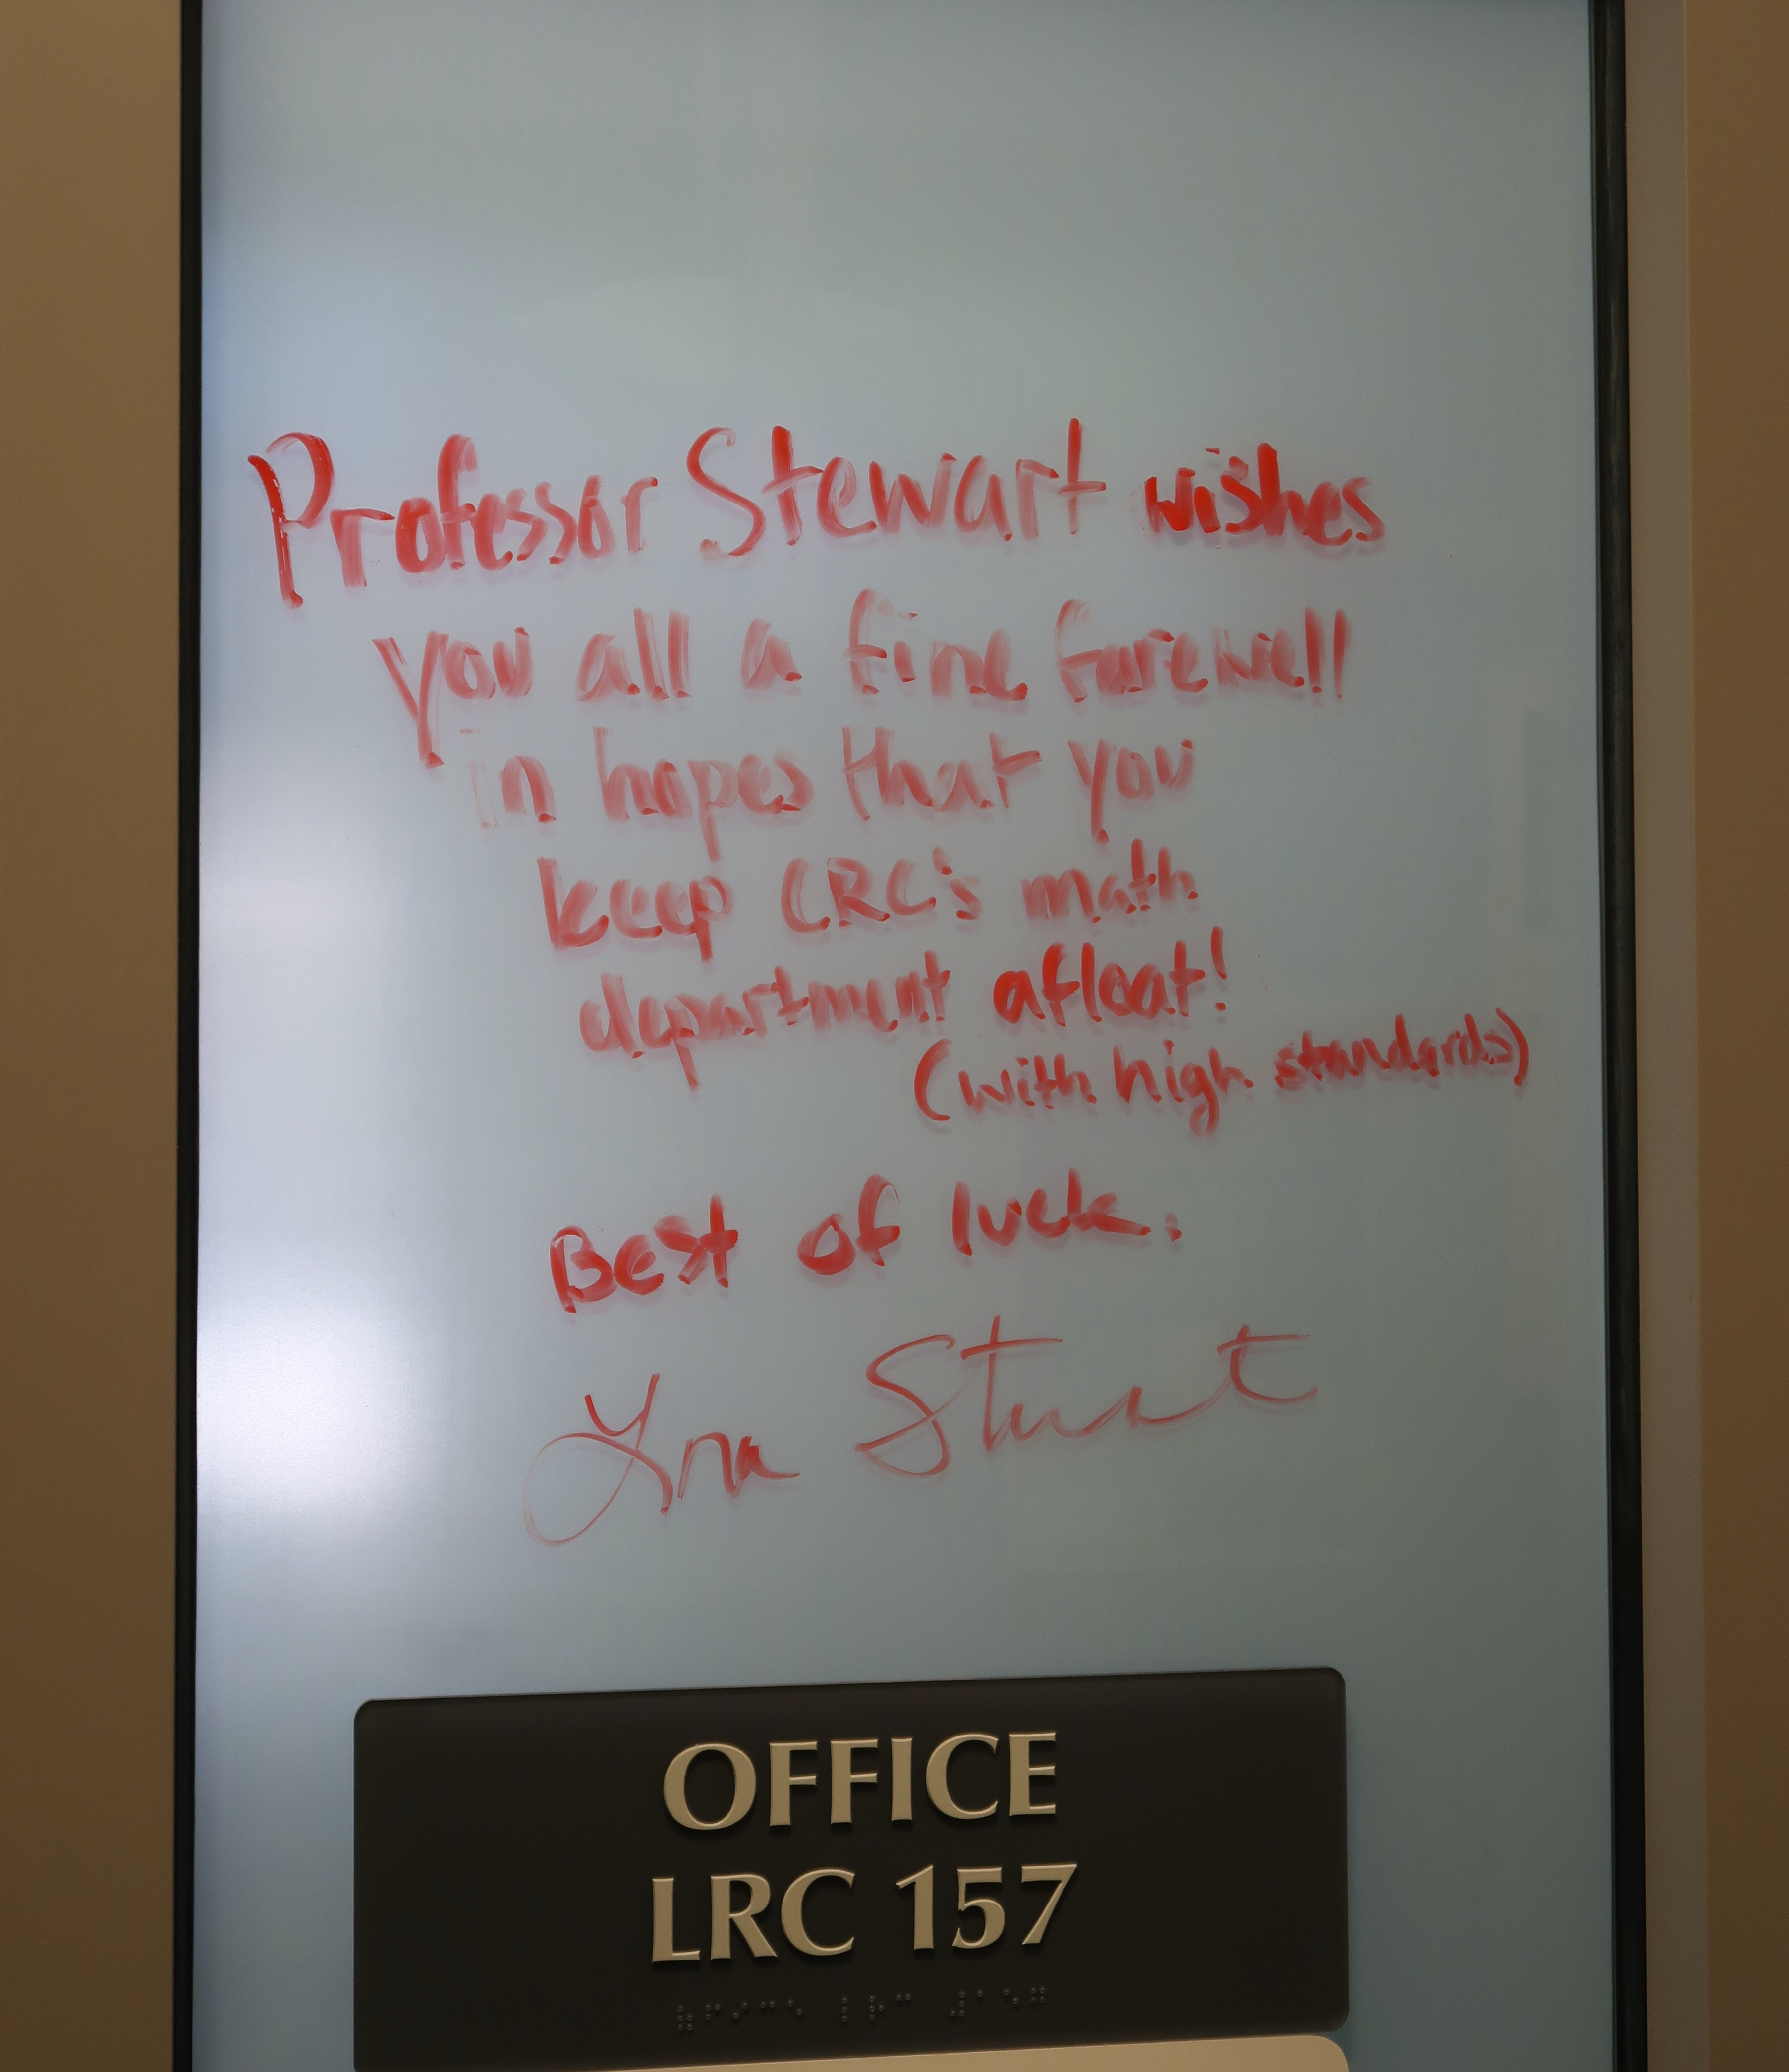 Professor Stewart wishes
you all a fine farewell
in hopes that you
keep CRC's math
department afloat!
(with high standards)
Best of luck.
Stewart
OFFICE
LRC 157